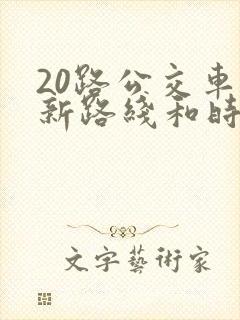 20路公交車
新路綫和時
文字藝術家